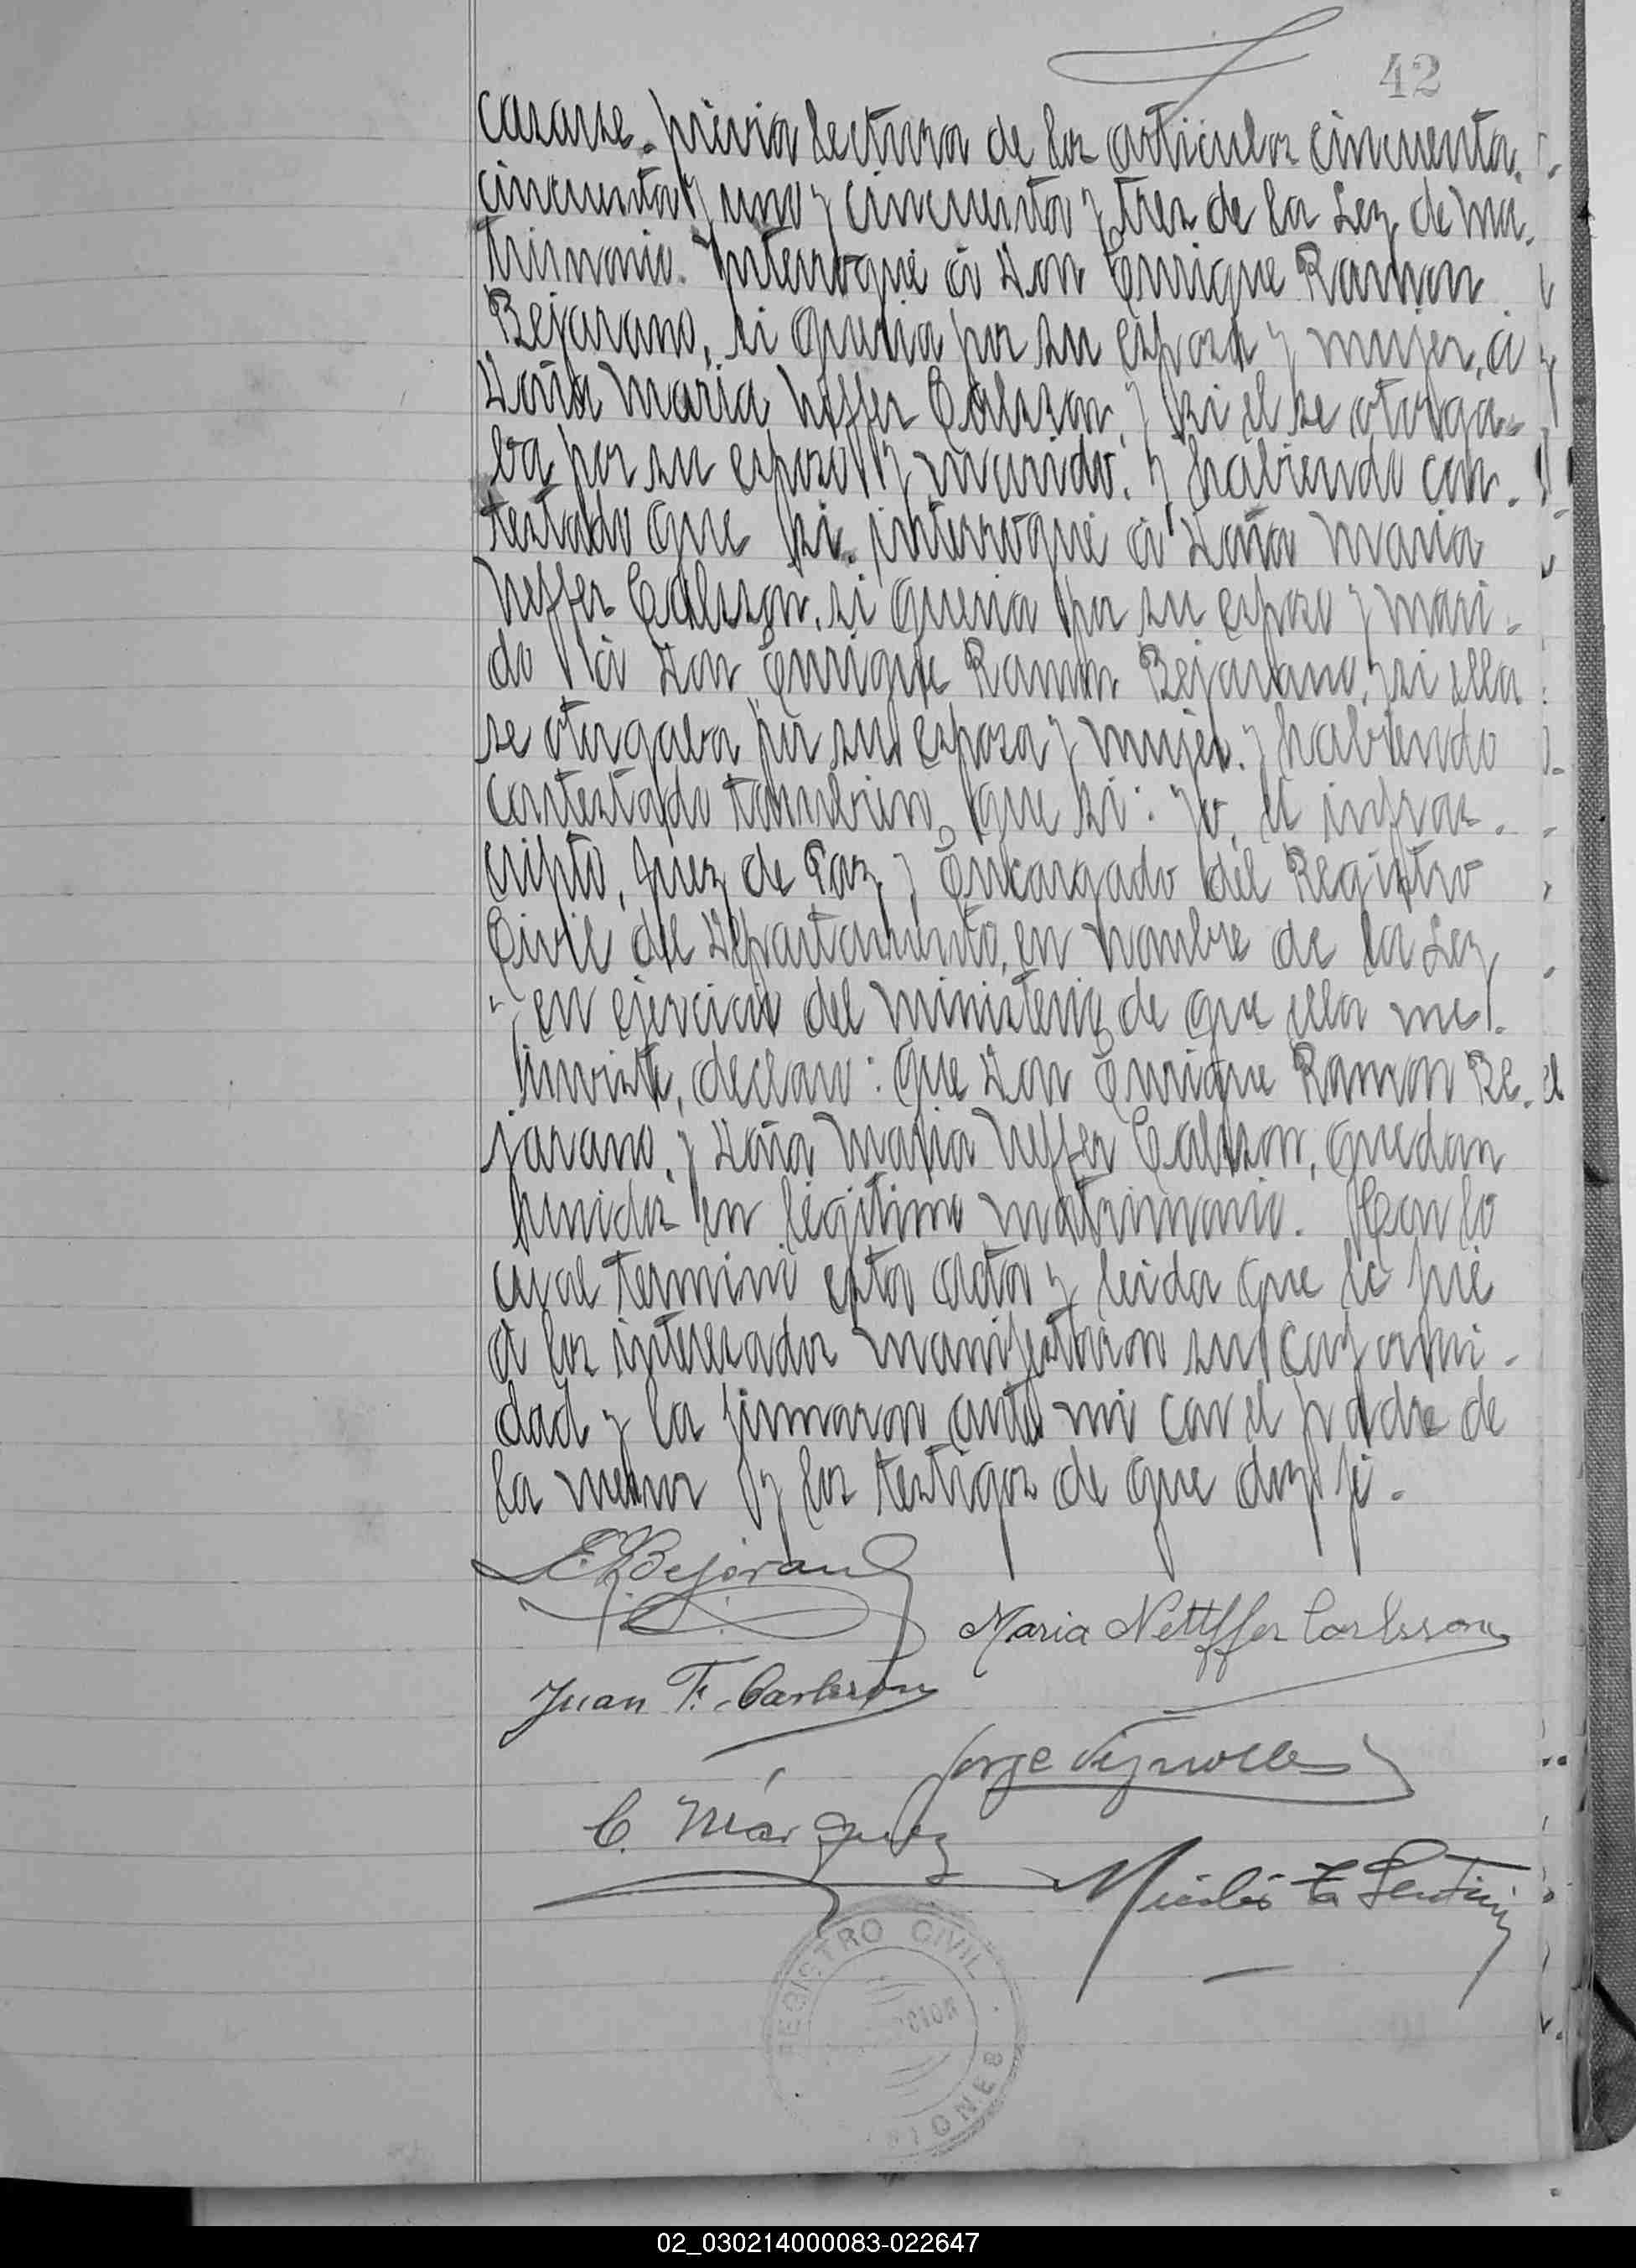 42
casarse. previa lectura de los articulos cincuenta.
cincuenta y uno y cincuenta y tres de la Ley de ma.
trimonio. Interroqué á Don Enrique Ramon
Bejarano, si queria por su esposa y mujer, á
Doña Maria Neffer Calsson, y si el se otorga-
ba por su esposo y marido. y habiendo con-
testado que si. interroqué á Doña Maria
Neffer Calsson, si queria por su esposo y mari-
do á Don Enrique Ramon Bejarano, y si ella
se otorgaba por su esposa y mujer. y habiendo
contestado tambien, que si: yo, el infras-
cripto, Juez de Paz, y Encargado del Registro
Civil del Departamento, en nombre de la Ley
y en ejercicio del ministerio de que ella me
inviste, declaro: que Don Enrique Ramon Be-
jarano, y Doña Maria Neffer Calsson, quedan
hunidos en legitimo matrimonio. Con lo
cual terminó esta acta y leida que le fué
á los interesados manifestaron su conformi-
dad y la firmaron ante mi con el padre de
la menor y los testigos de que doy fé.
E. R. Bejarano
Maria Nettffer Carlsson
Juan F. Carlsson
Jorge Vignolles
C. Márquez
Nicolás
REGISTRO CIVIL
02_030214000083-022647